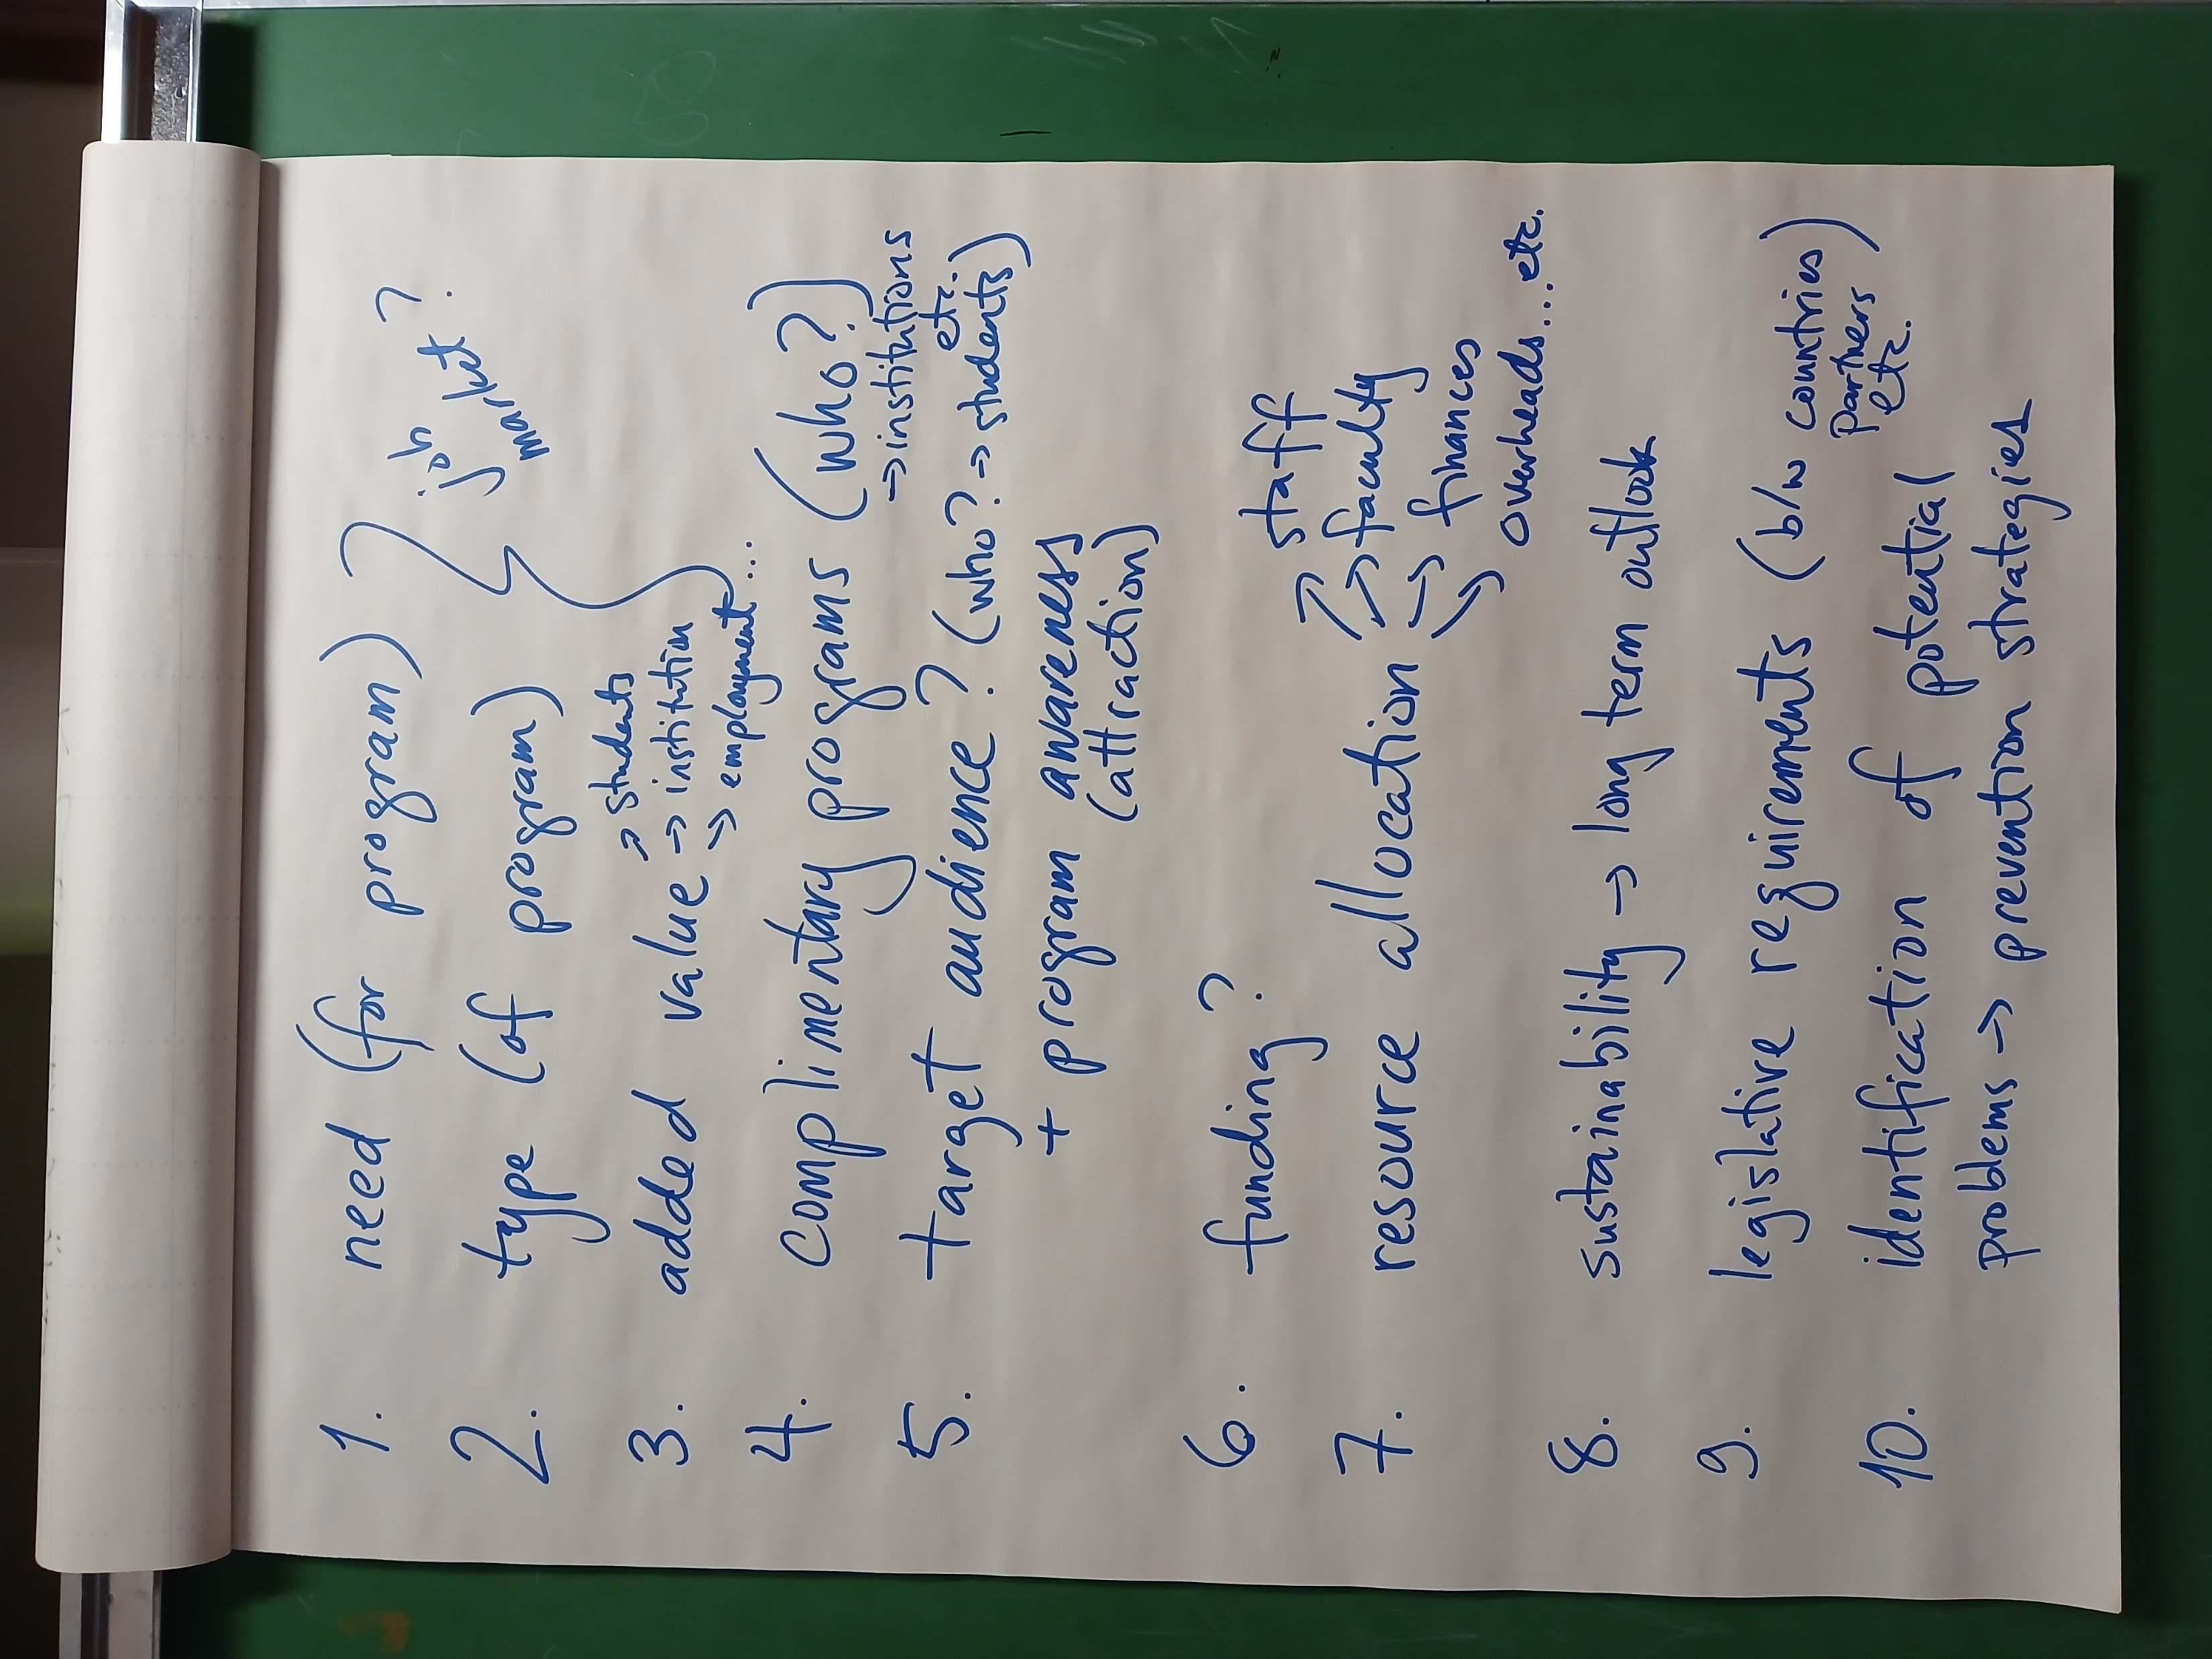 1. need (for program) } job
2. type (of program) } market?
→ students
3. added value → institution
→ employment...
4. complimentary programs (who?)
→ institutions etc.
5. target audience? (who? → students)
+ program awareness
(attraction)
6. funding?
↗ staff
7. resource allocation → faculty
→ finances
↘ overheads...etc.
8. sustainability → long term outlook
9. legislative requirements (b/w countries)
partners
etc.
10. identification of potential
problems → prevention strategies